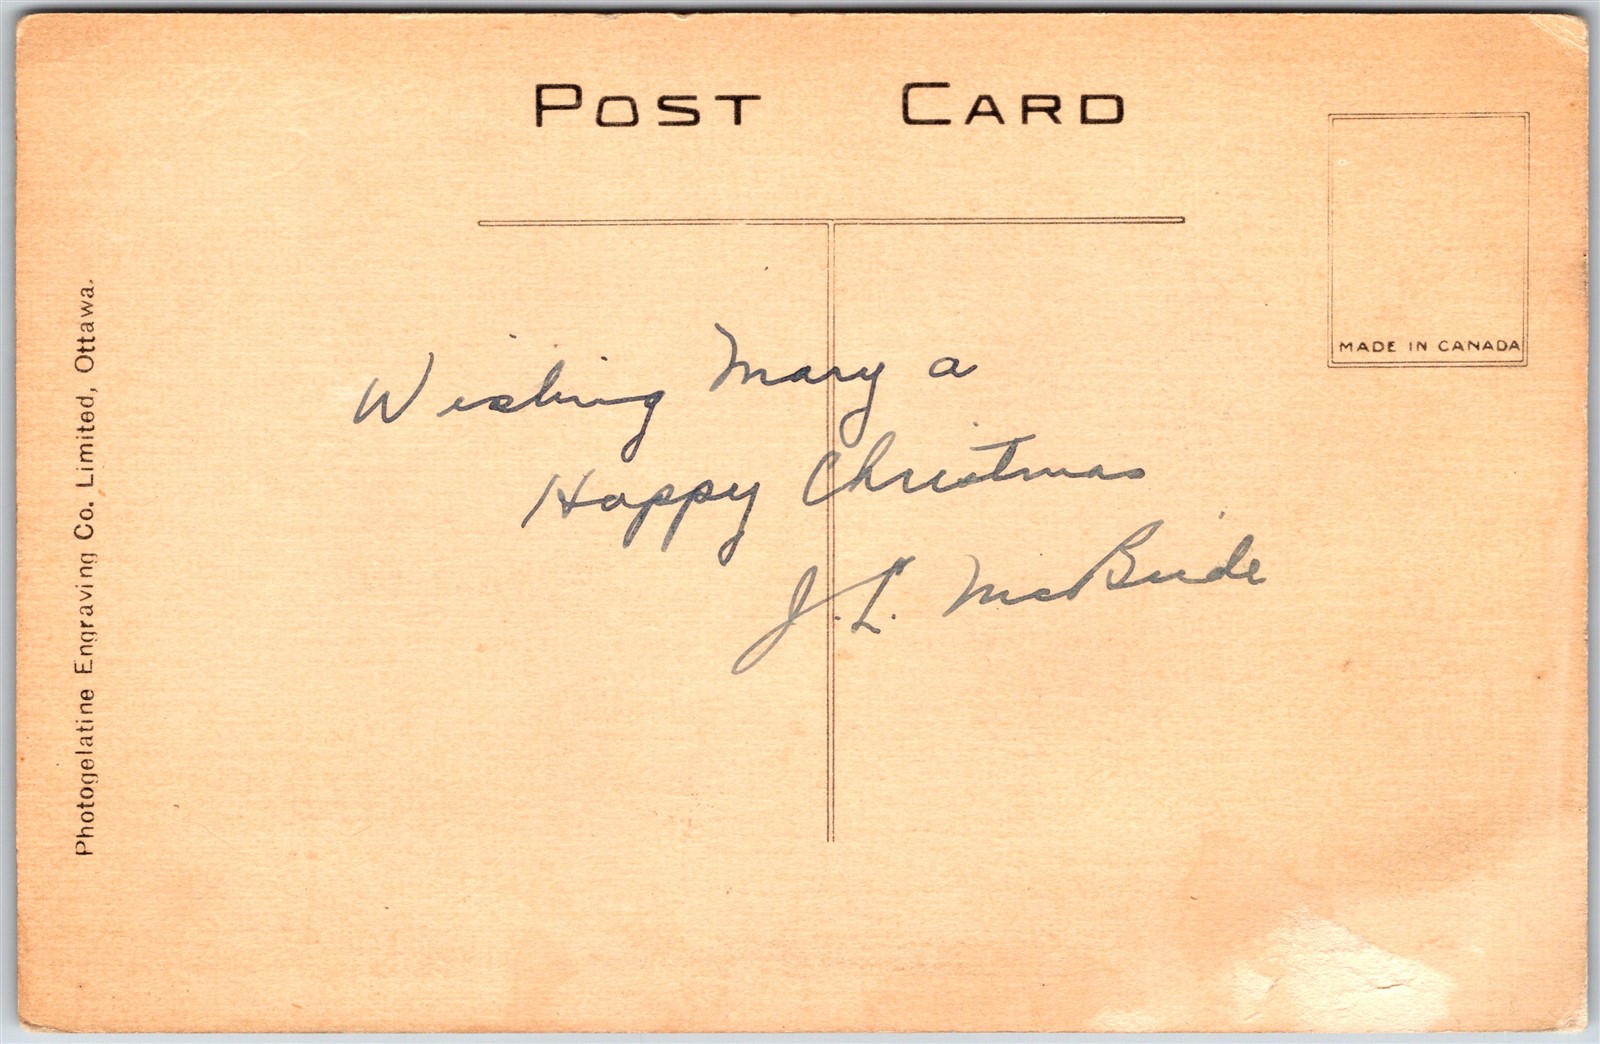 POST CARD
MADE IN CANADA
Wishing Mary a
Happy Christmas
J. L. McBride
Photogelatine Engraving Co. Limited, Ottawa.